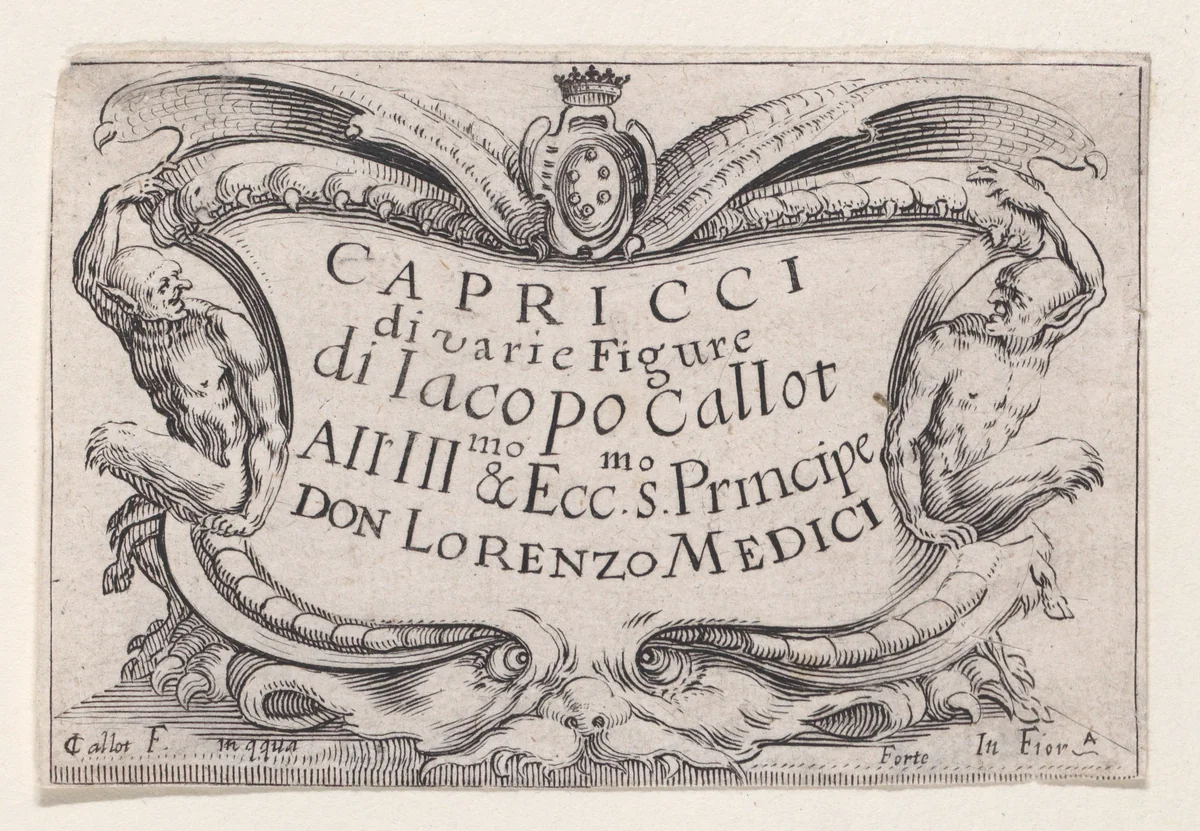 CAPRICCI
di varie Figure
di Iacopo Callot
All'Ill^mo & Ecc.^mo S. Principe
DON LORENZO MEDICI
Callot F. in aqua forte In Fior^A